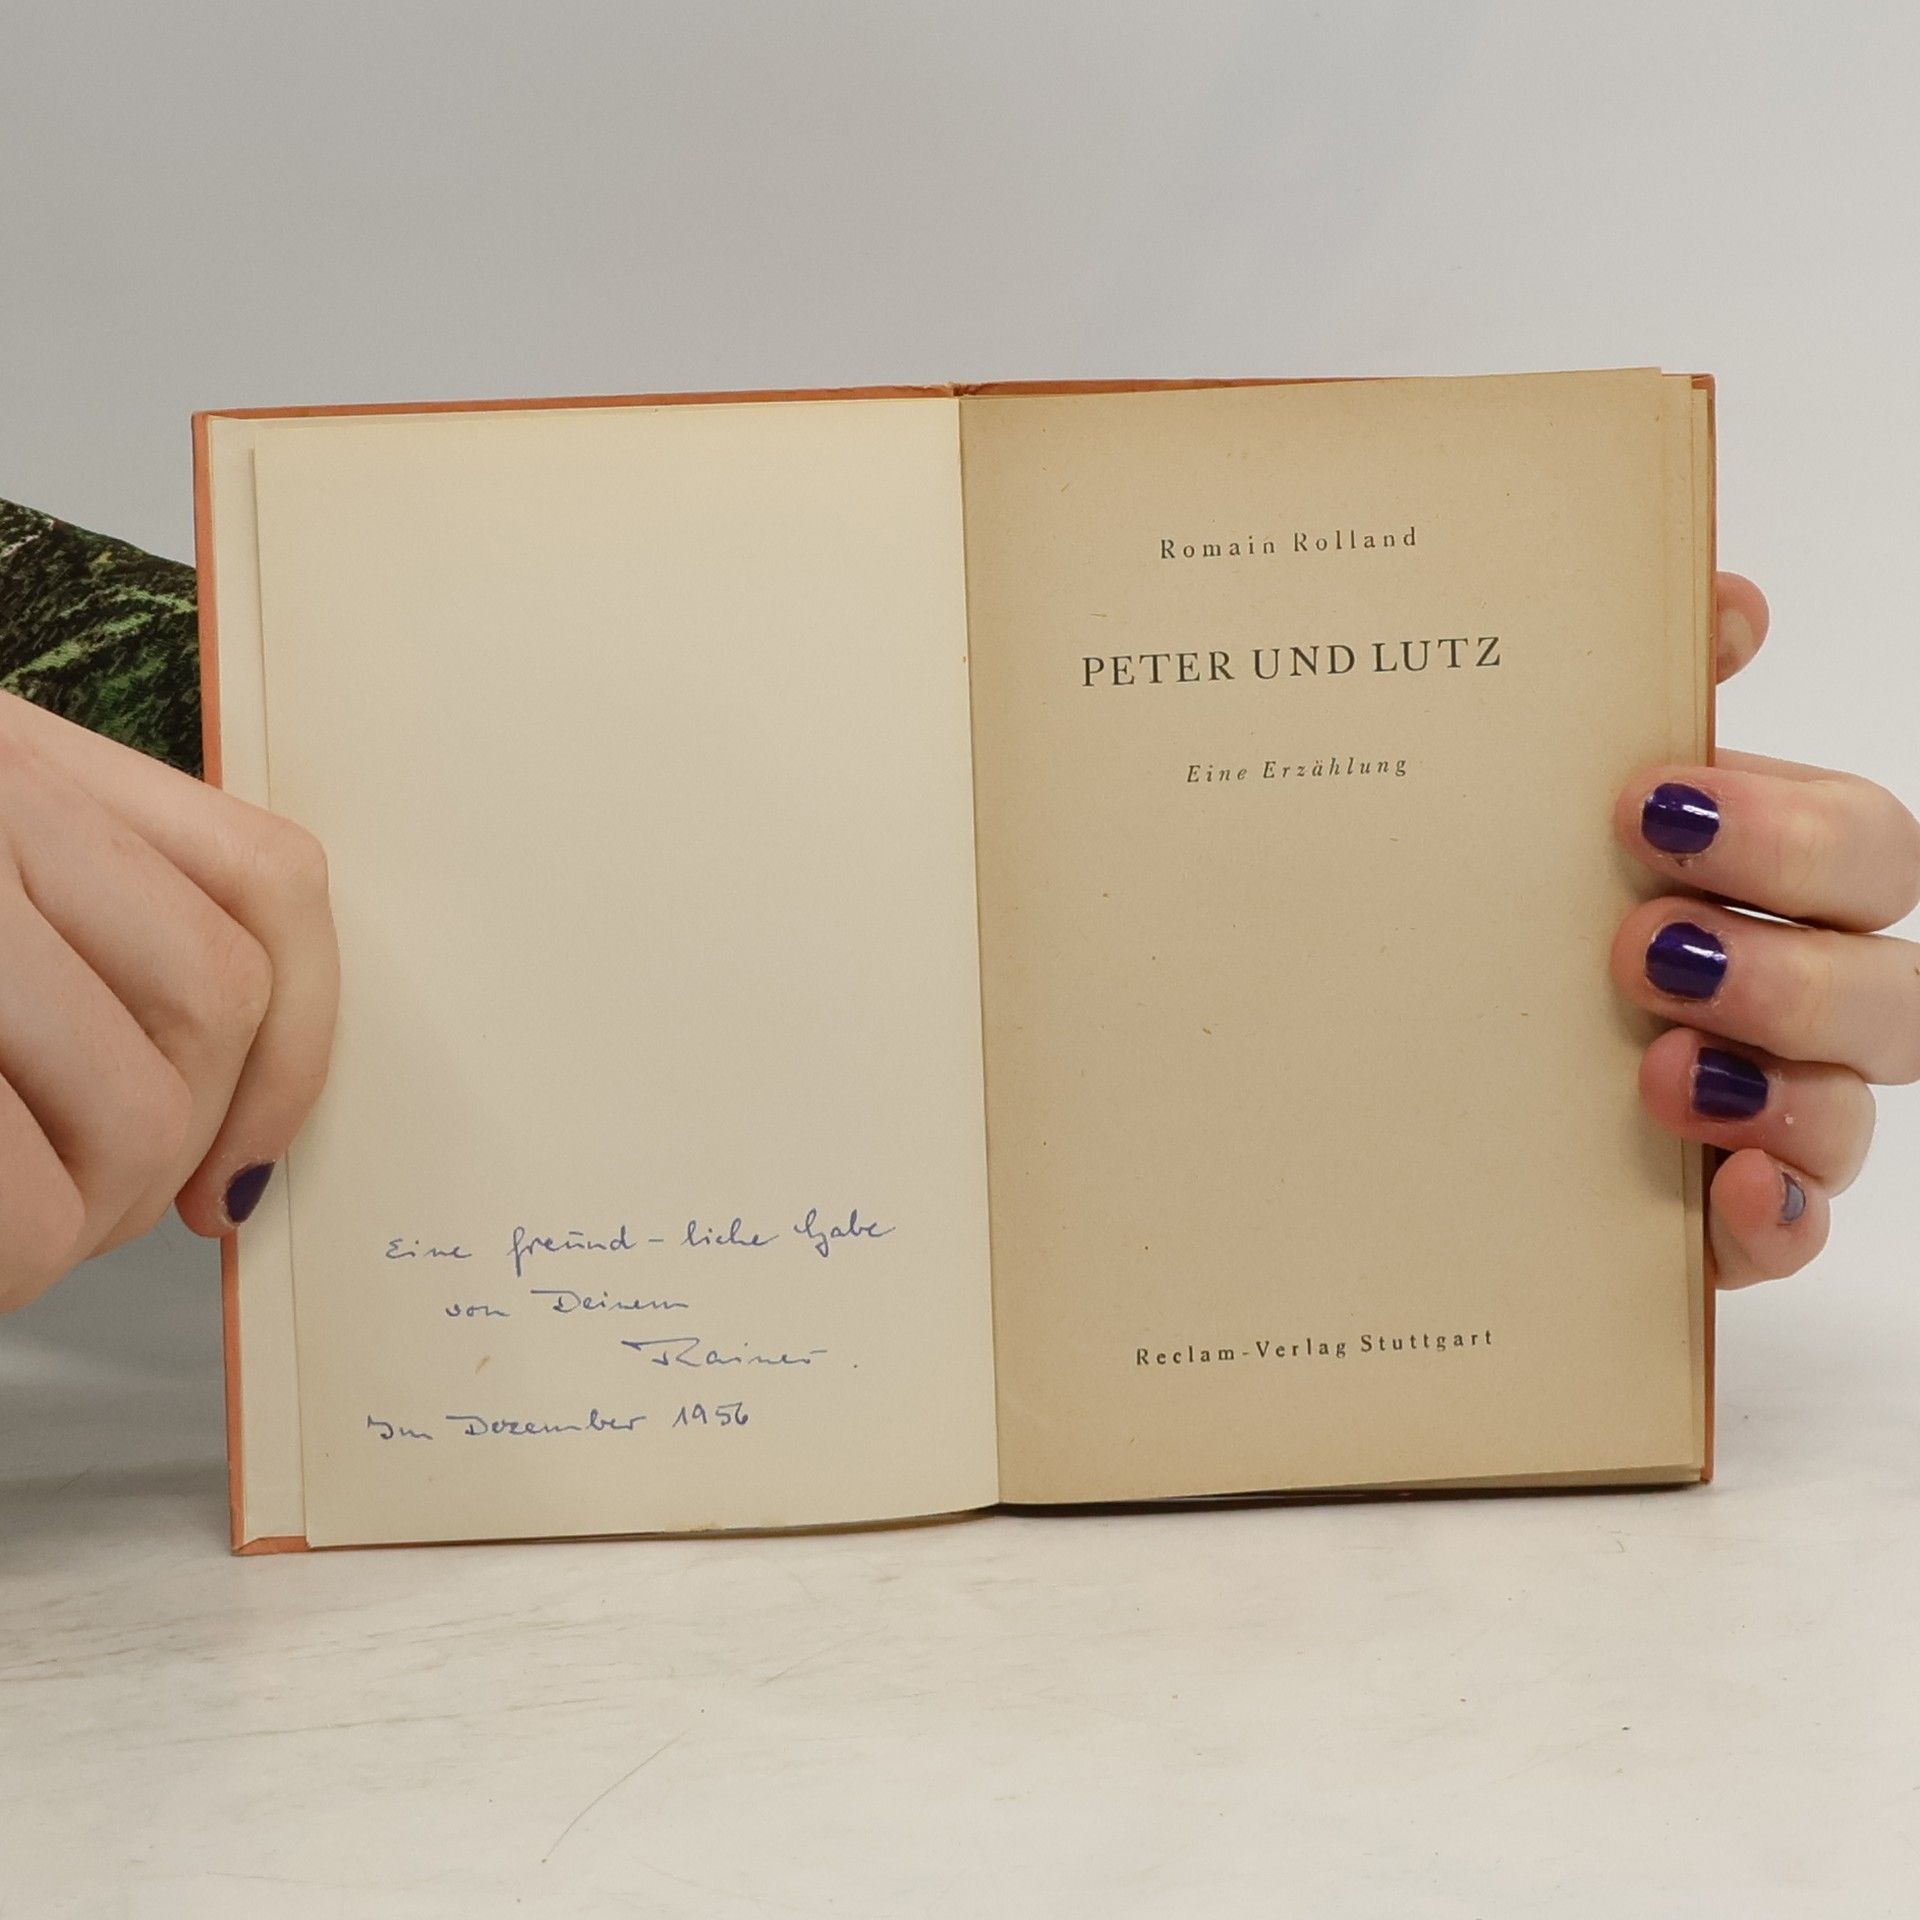 Eine freund - liche Gabe
von Deinem
Rainer.
Im Dezember 1956
Romain Rolland
PETER UND LUTZ
Eine Erzählung
Reclam-Verlag Stuttgart